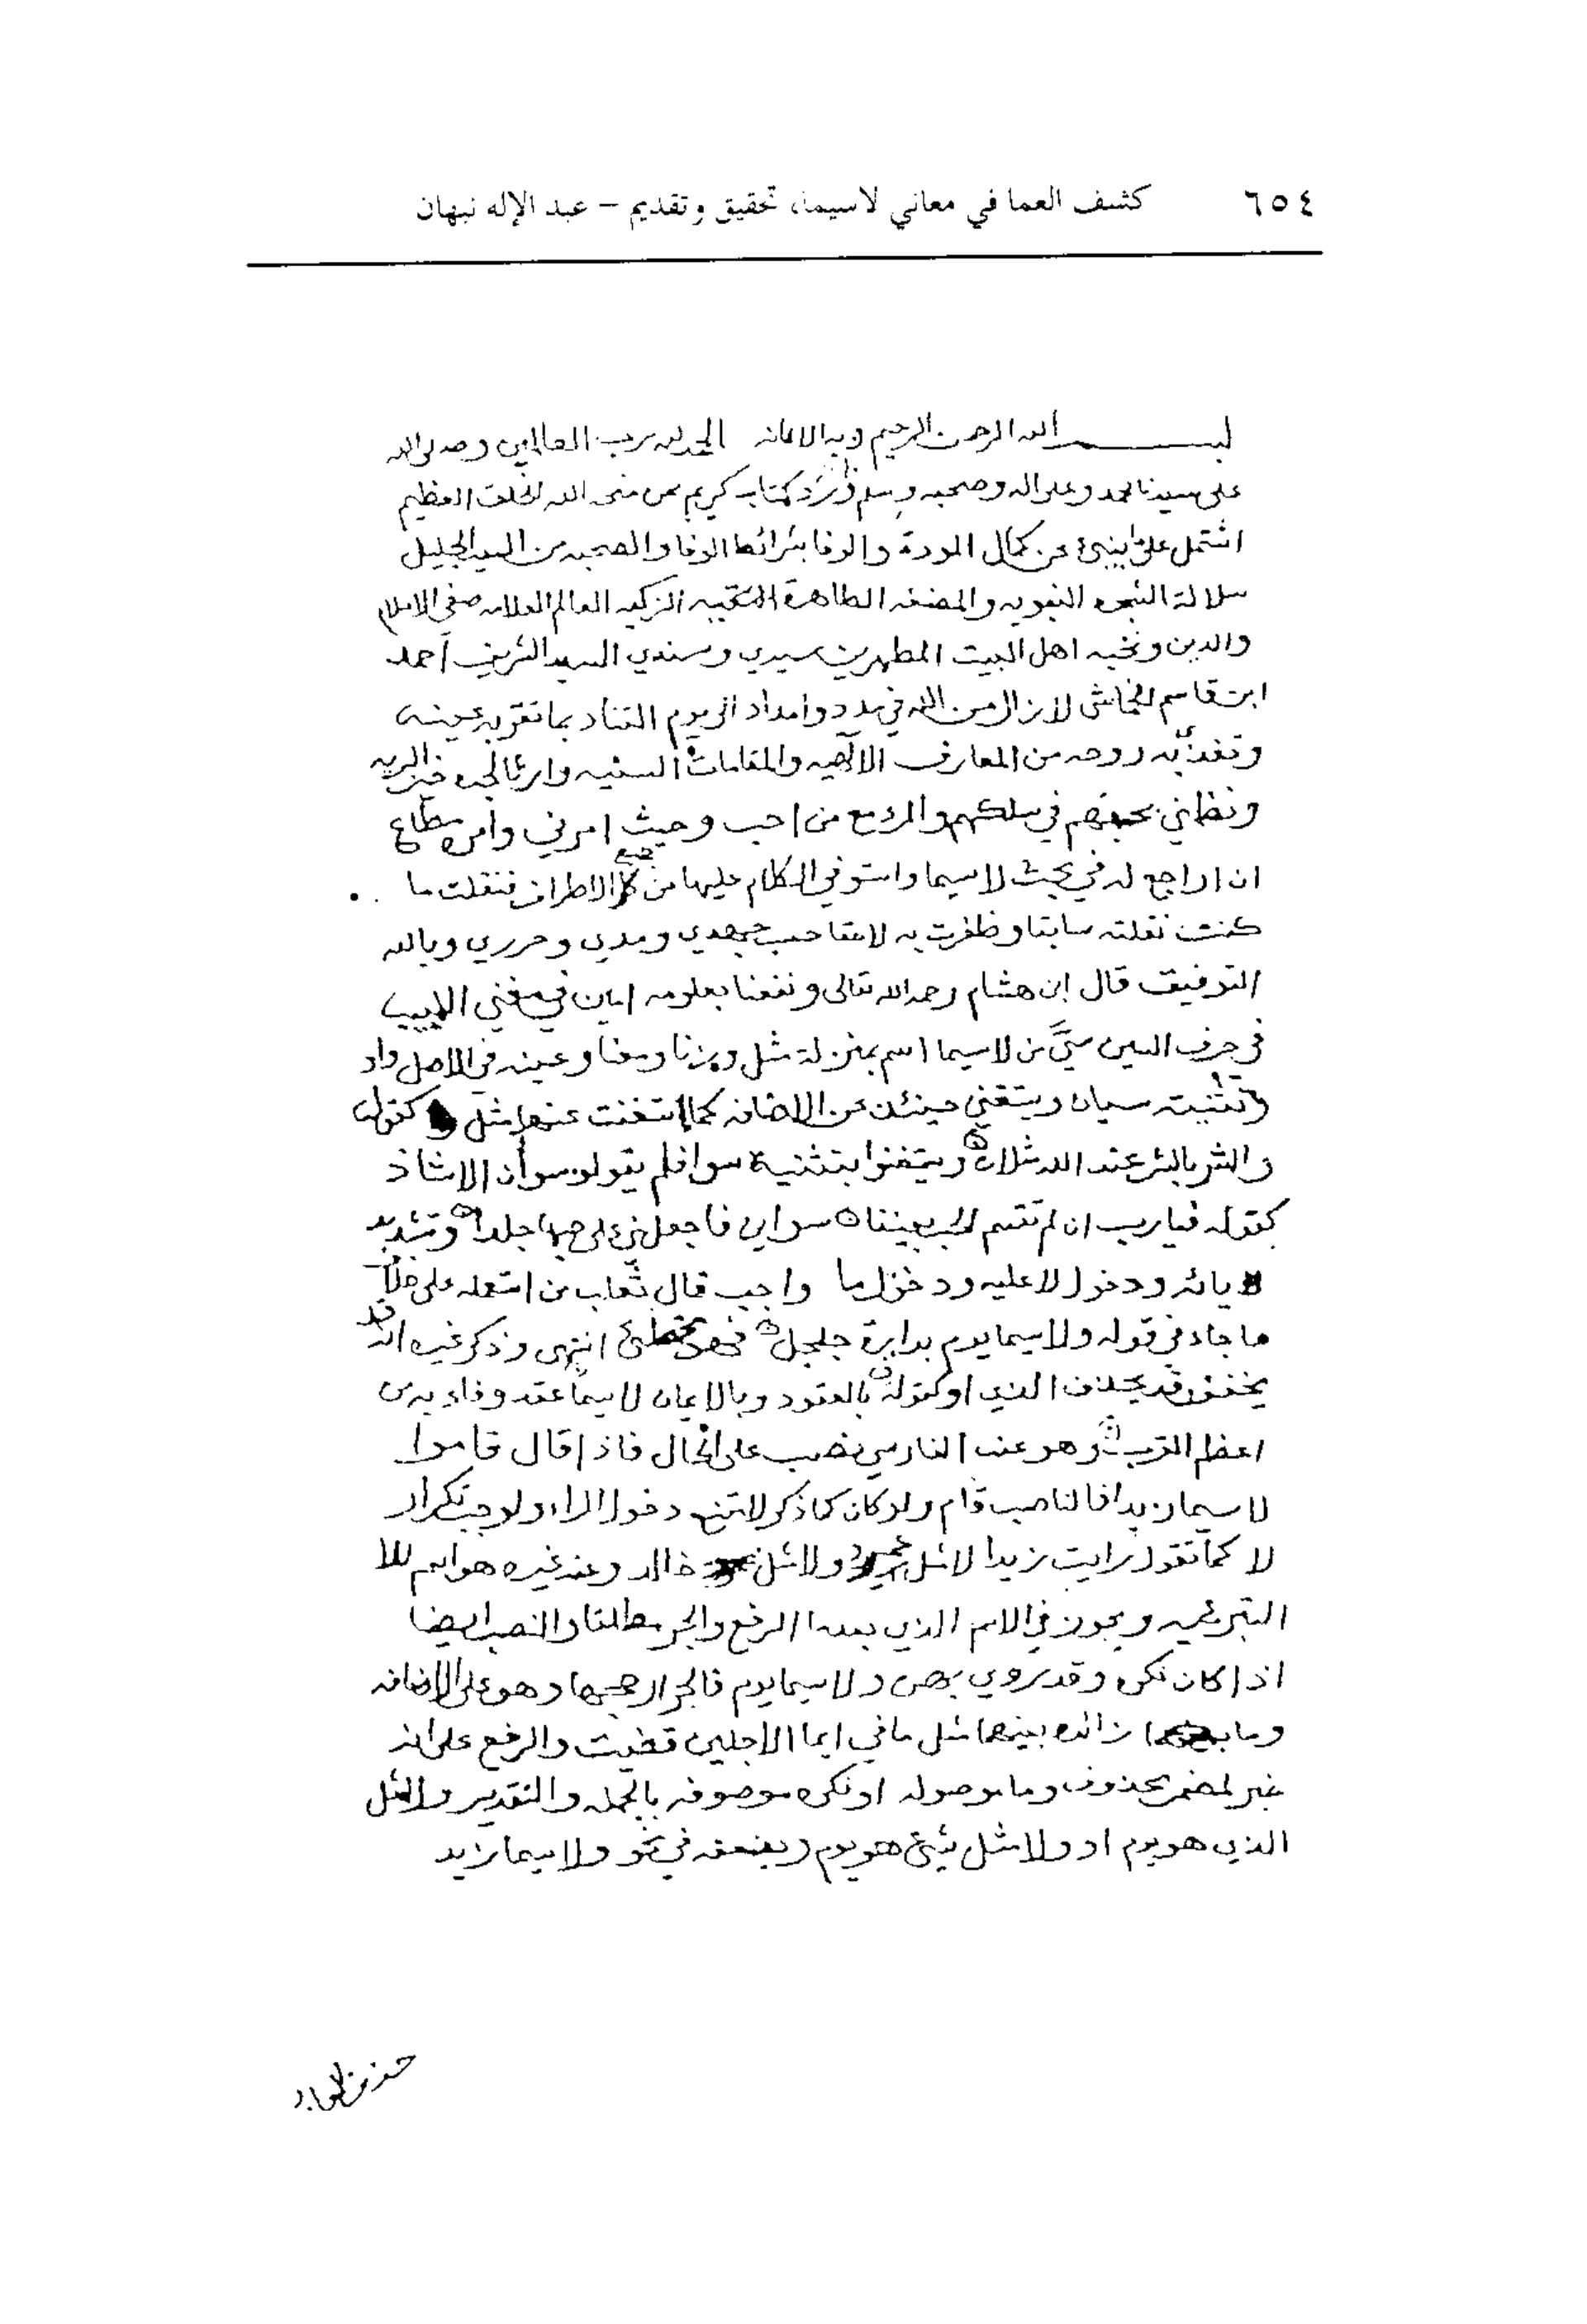 ٦٥٤ كشف العما في معاني لاسيما، تحقيق وتقديم – عبد الإله نبهان
بسم الله الرحمن الرحيم وبه الاعانه الحمد لله رب العالمين وصلى الله
على سيدنا محمد وعلى اله وصحبه وسلم ورد كتاب كريم ممن منحه الله الخلق العظيم
اشتمل على ما ينبئ عن كمال المودة والوفا بشرائط الوفا والصحبه من السيد الجليل
سلالة الشجره النبويه والمضغه الطاهرة الزكيه العالم العلامه صفي الاسلام
والدين ونخبه اهل البيت المطهرين سيدي وسندي السيد الشريف أحمد
ابن قاسم لازال من الله في مدد وامداد الى يوم التناد بما تقر به عينه
وتغذا به روحه من المعارف الالهيه والمقامات السنيه وارثا لجده خير البريه
ونظمني بحبهم في سلكهم والمرء مع من احب وحيث امرني وامره مطاع
ان اراجع له في بحث لاسيما واستوفي الكلام عليها من جميع الاطراف فنقلت ما
كنت نقلته سابقا وظفرت به لاحقا حسب جهدي و وبالله
التوفيق قال ابن هشام رحمه الله تعالى ونفعنا بعلومه امين في مغني اللبيب
في حرف السين سيّ من لاسيما اسم بمنزلة مثل وزنا ومعنا وعينه في الاصل واو
وتثنيته سيان ويستغني حينئذ عن الاضافه كما استغنت عنها مثل كقوله
والشر بالشر عند الله مثلان ه ويستغنوا بتثنية سوا فلم يقولو سواان الا شاذ
كقوله فيا رب ان لم تقسم الحب بيننا ه سواين فاجعلني على حبها جلدا ه وتشديد
يائه ودخول لا عليه ودخول ما واجب قال ثعلب من استعمله على خلاف
ما جاء في قوله ولاسيما يوم بدارة جلجل ه فهو مخطئ انتهى وذكر غيره انه قد
يخفف وقد يحذف الذي او كقوله ف بالعقود وبالايمان لاسيما عقد وفاء به من
اعظم القرب وهو عند الفارسي نصب على الحال فاذا قال قاموا
لاسيما زيد فالناصب قام ولو كان كما ذكر لامتنع دخول الواو ولوجب تكرار
لا كما تقول رايت زيدا لا مثل عمرو ولا مثل خالد وعند غيره هو اسم للا
التبرئيه ويجوز في الاسم الذي بعدها الرفع والجر مطلقا والنصب ايضا
اذا كان نكره وقد روي بهن ولاسيما يوم فالجر ارجحها وهو على الاضافه
وما زائده بينهما مثل ما في ايما الاجلين قضيت والرفع على انه
خبر لمضمر محذوف وما موصوله او نكره موصوفه بالجمله والتقدير ولا مثل
الذي هو يوم او ولا مثل شئ هو يوم ويضعفه في نحو ولاسيما زيد